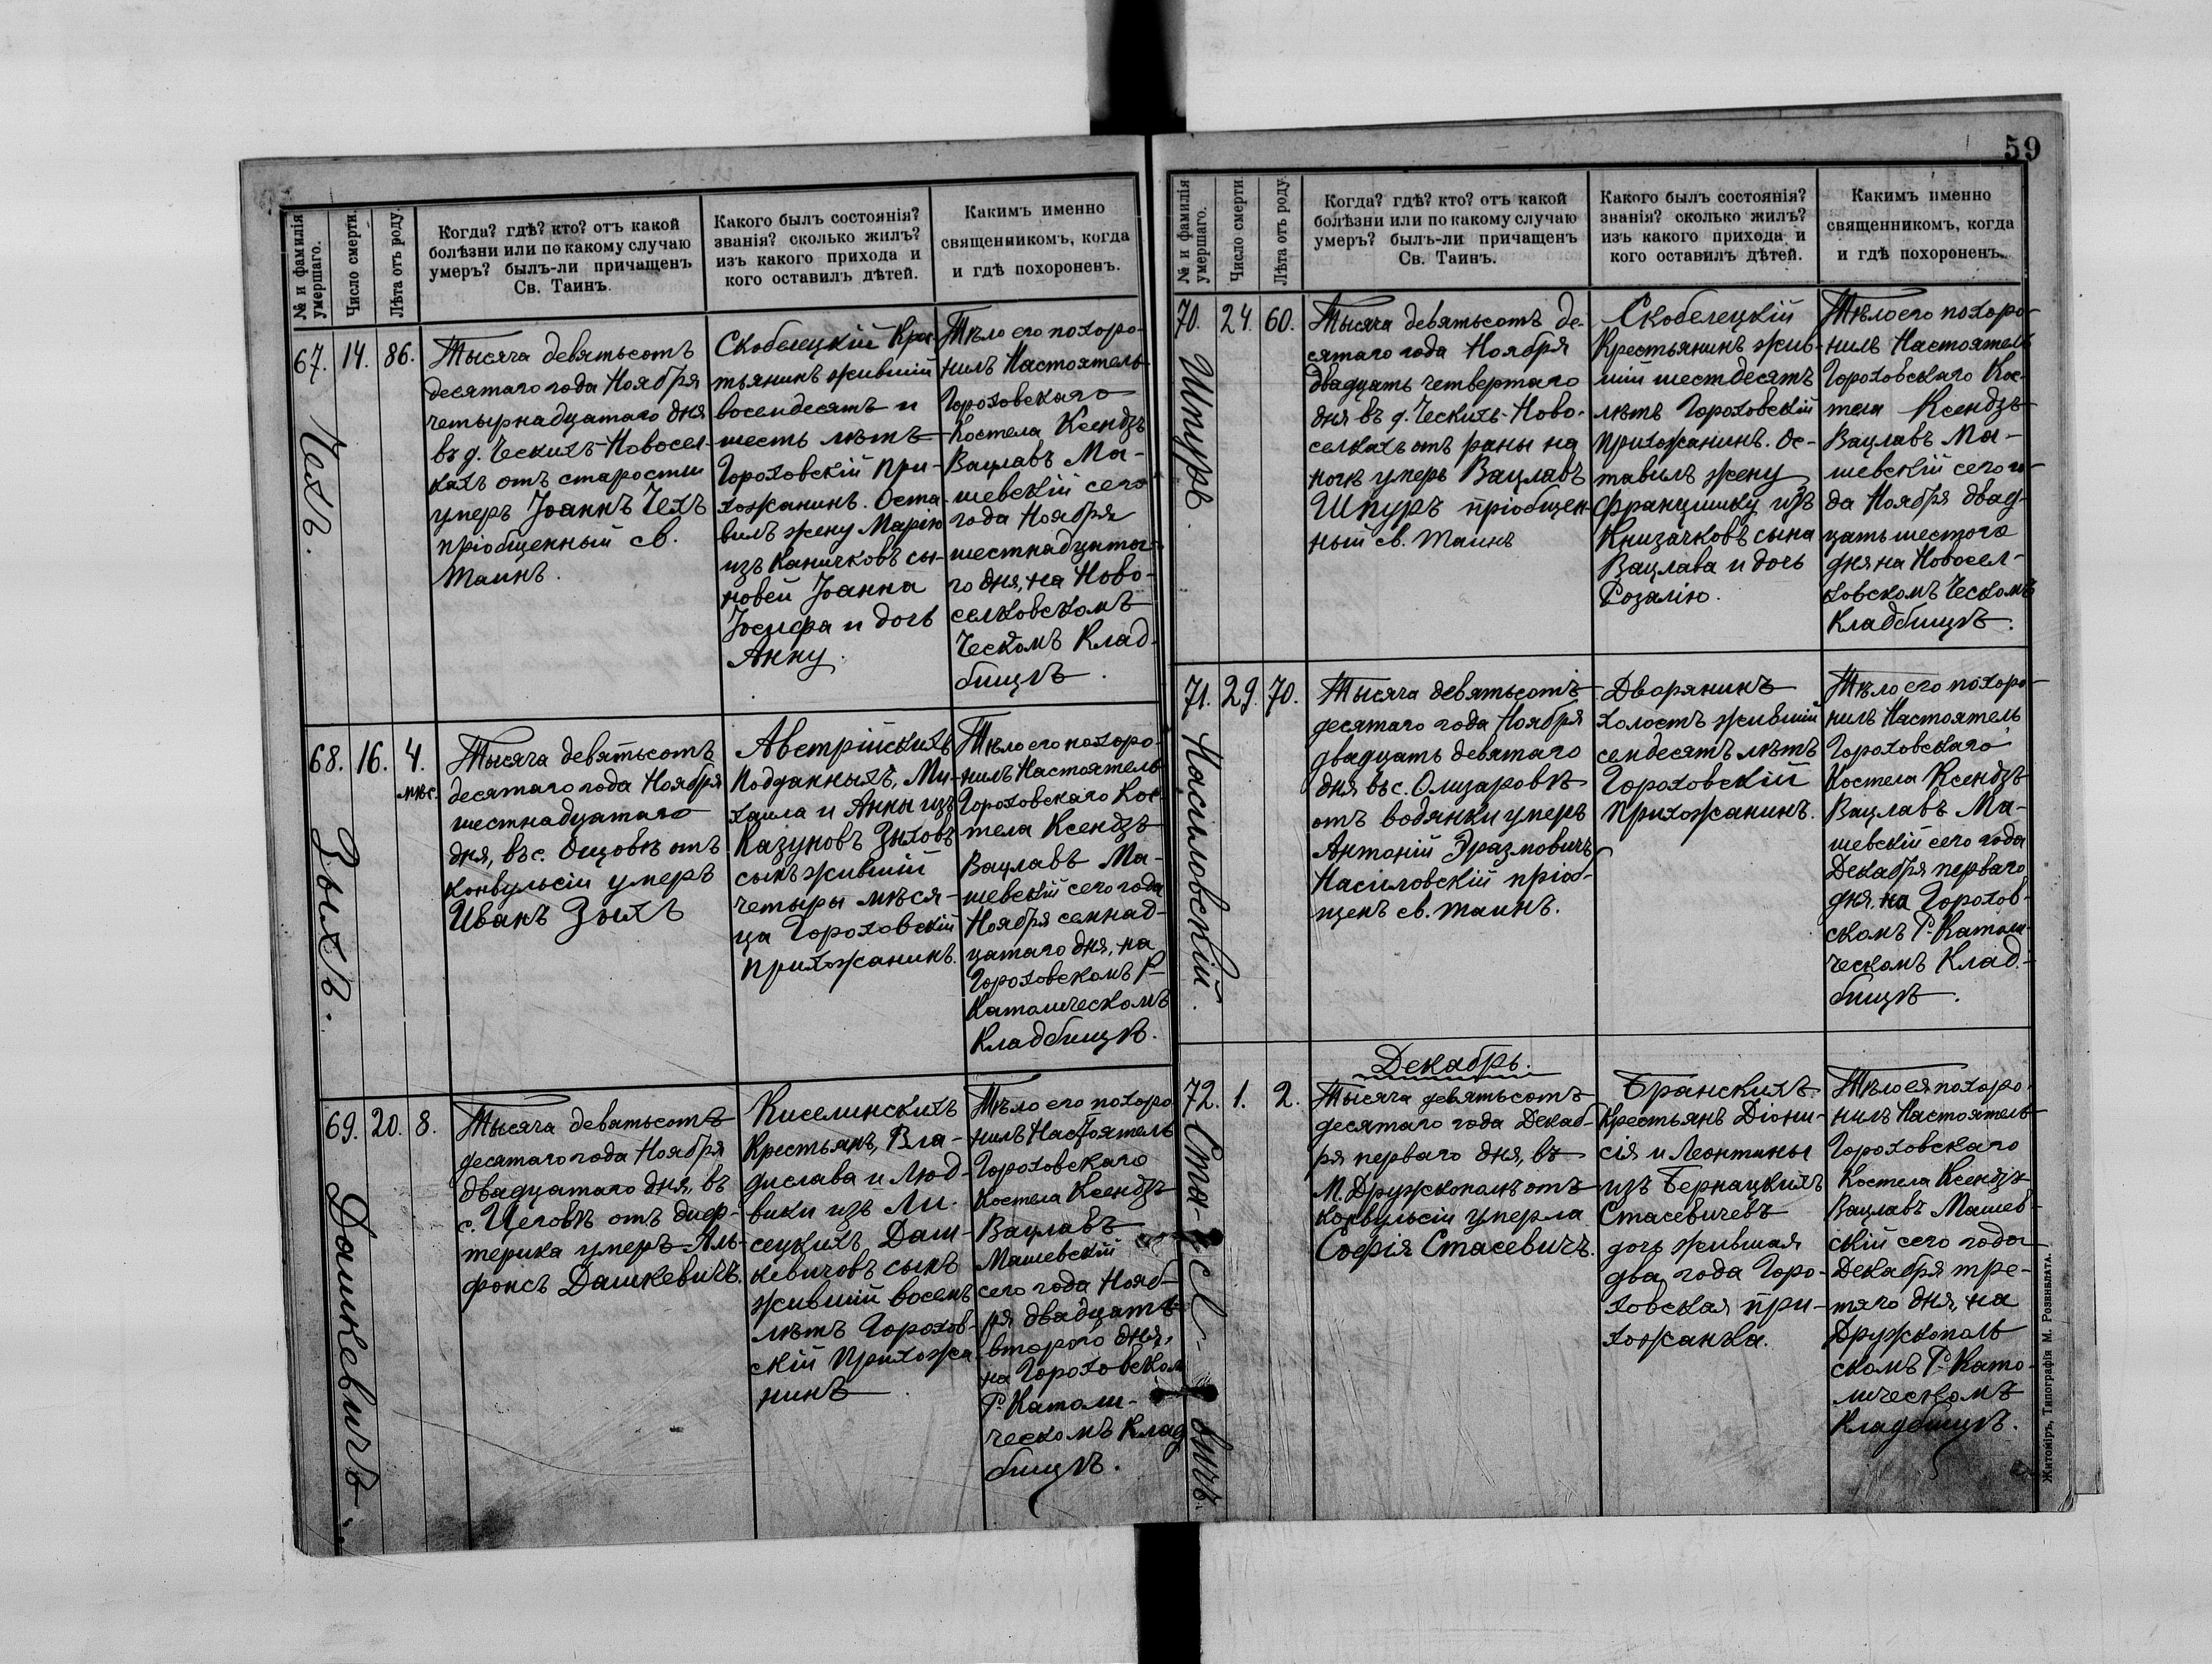 № и фамилія
умершаго.
Число смерти.
Лѣта отъ роду.
Когда? гдѣ? кто? отъ какой
болѣзни или по какому случаю
умеръ? былъ-ли причащенъ
Св. Таинъ.
Какого былъ состоянія?
званія? сколько жилъ?
изъ какого прихода и
кого оставилъ дѣтей.
Каким­ъ именно
священникомъ, когда
и гдѣ похороненъ.
67.
Чехъ.
14.
86.
Тысяча девятьсотъ
десятаго года Ноября
четырнадцатаго дня
въ д. Ческихъ-Новосел-
кахъ отъ старости
умеръ Іоаннъ Чехъ
пріобщенный св.
таинъ.
Скобелецкій Крес-
тьянинъ жившій
восемдесятъ и
шесть лѣтъ
Гороховскій при-
хожанинъ. Оста-
вилъ жену Марію
изъ Каничковъ сы-
новей Іоанна
Іосифа и дочь
Анну.
Тѣло его похоро-
нилъ Настоятель
Гороховскаго
Костела Ксендзъ
Вацлавъ Ма-
шевскій сего
года Ноября
шестнадцата-
го дня, на Ново-
селковскомъ
Ческомъ Клад-
бищѣ.
68.
Зыхъ.
16.
4.
мѣс.
Тысяча девятьсотъ
десятаго года Ноября
шестнадцатаго
дня, въ с. Ощовѣ отъ
конвульсіи умеръ
Иванъ Зыхъ
Австрійскихъ
Подданныхъ, Ми-
хаила и Анны изъ
Казуновъ Зыховъ
сынъ жившій
четыры мѣся-
ца Гороховскій
прихожанинъ.
Тѣло его похоро-
нилъ Настоятель
Гороховскаго Кос-
тела Ксендзъ
Вацлавъ Ма-
шевскій сего года
Ноября семнад-
цатаго дня, на
Гороховскомъ Р-
Католическомъ
Кладбищѣ.
69.
Дашкевичъ.
20.
8.
Тысяча девятьсотъ
десятаго года Ноября
двадцатаго дня, въ
с. Цеговѣ отъ диф-
терика умеръ Аль-
фонсъ Дашкевичъ.
Киселинскихъ
Крестьянъ, Вла-
дислава и Люд-
вики изъ Ли-
сецкихъ Даш-
кевичовъ сынъ
жившій восемь
лѣтъ Горохов-
скій Прихожа-
нинъ.
Тѣло его похоро-
нилъ Настоятель
Гороховскаго
Костела Ксендзъ
Вацлавъ
Машевскій
сего года Нояб-
ря двадцать
второго дня,
на Гороховском
Р. Католи-
ческомъ Клад
бищѣ.
59
№ и фамилія
умершаго.
Число смерти.
Лѣта отъ роду.
Когда? гдѣ? кто? отъ какой
болѣзни или по какому случаю
умеръ? былъ-ли причащенъ
Св. Таинъ.
Какого былъ состоянія?
званія? сколько жилъ?
изъ какого прихода и
кого оставилъ дѣтей.
Какимъ именно
священникомъ, когда
и гдѣ похороненъ.
70.
Шпуръ.
24.
60.
Тысяча девятьсотъ де-
сятаго года Ноября
двадцать четвертаго
дня въ д. Ческихъ-Ново-
селкахъ отъ раны на
ногѣ умеръ Вацлавъ
Шпуръ пріобщен-
ный св. таинъ
Скобелецкій
Крестьянинъ жив-
шій шестдесятъ
лѣтъ Гороховскій
прихожанинъ. Ос-
тавилъ жену
Францишку изъ
Книзачковъ сына
Вацлава и дочь
Розалію.
Тѣло его похоро-
нилъ Настоятель
Гороховскаго Кос-
тела Ксендзъ
Вацлавъ Ма-
шевскій сего го-
да Ноября двад-
цать шестого
дня на Новосел-
ковскомъ Ческомъ
Кладбищѣ.
71.
Насиловскій.
29.
70.
Тысяча девятьсотъ
десятаго года Ноября
двадцать девятаго
дня въ с. Олизаровѣ
отъ водянки умеръ
Антоній Эразмовичъ
Насиловскій пріоб-
щенъ св. таинъ.
Дворянинъ
холостъ жившій
семдесятъ лѣтъ
Гороховскій
прихожанинъ.
Тѣло его похоро-
нилъ Настоятель
Гороховскаго
Костела Ксендзъ
Вацлавъ Ма-
шевскій сего года
Декабря перваго
дня, на Горохов-
скомъ Р. Католи-
ческомъ Клад-
бищѣ.
Декабрь.
72.
Стасевичъ.
1.
2.
Тысяча девятьсотъ
десятаго года Декаб-
ря перваго дня, въ
м. Дружкополѣ отъ
конвульсіи умерла
Софія Стасевичъ.
Бранскихъ
Крестьянъ Діони-
сія и Леонтины
изъ Бернацкихъ
Стасевичевъ
дочь жившая
два года Горо-
ховская при-
хожанка.
Тѣло ея похоро-
нилъ Настоятель
Гороховскаго
Костела Ксендзъ
Вацлавъ Машев-
скій сего года
Декабря тре-
тяго дня, на
Дружкополь
скомъ Р. Като-
лическомъ
Кладбищѣ.
Житоміръ, Типографія М. Розенблата.